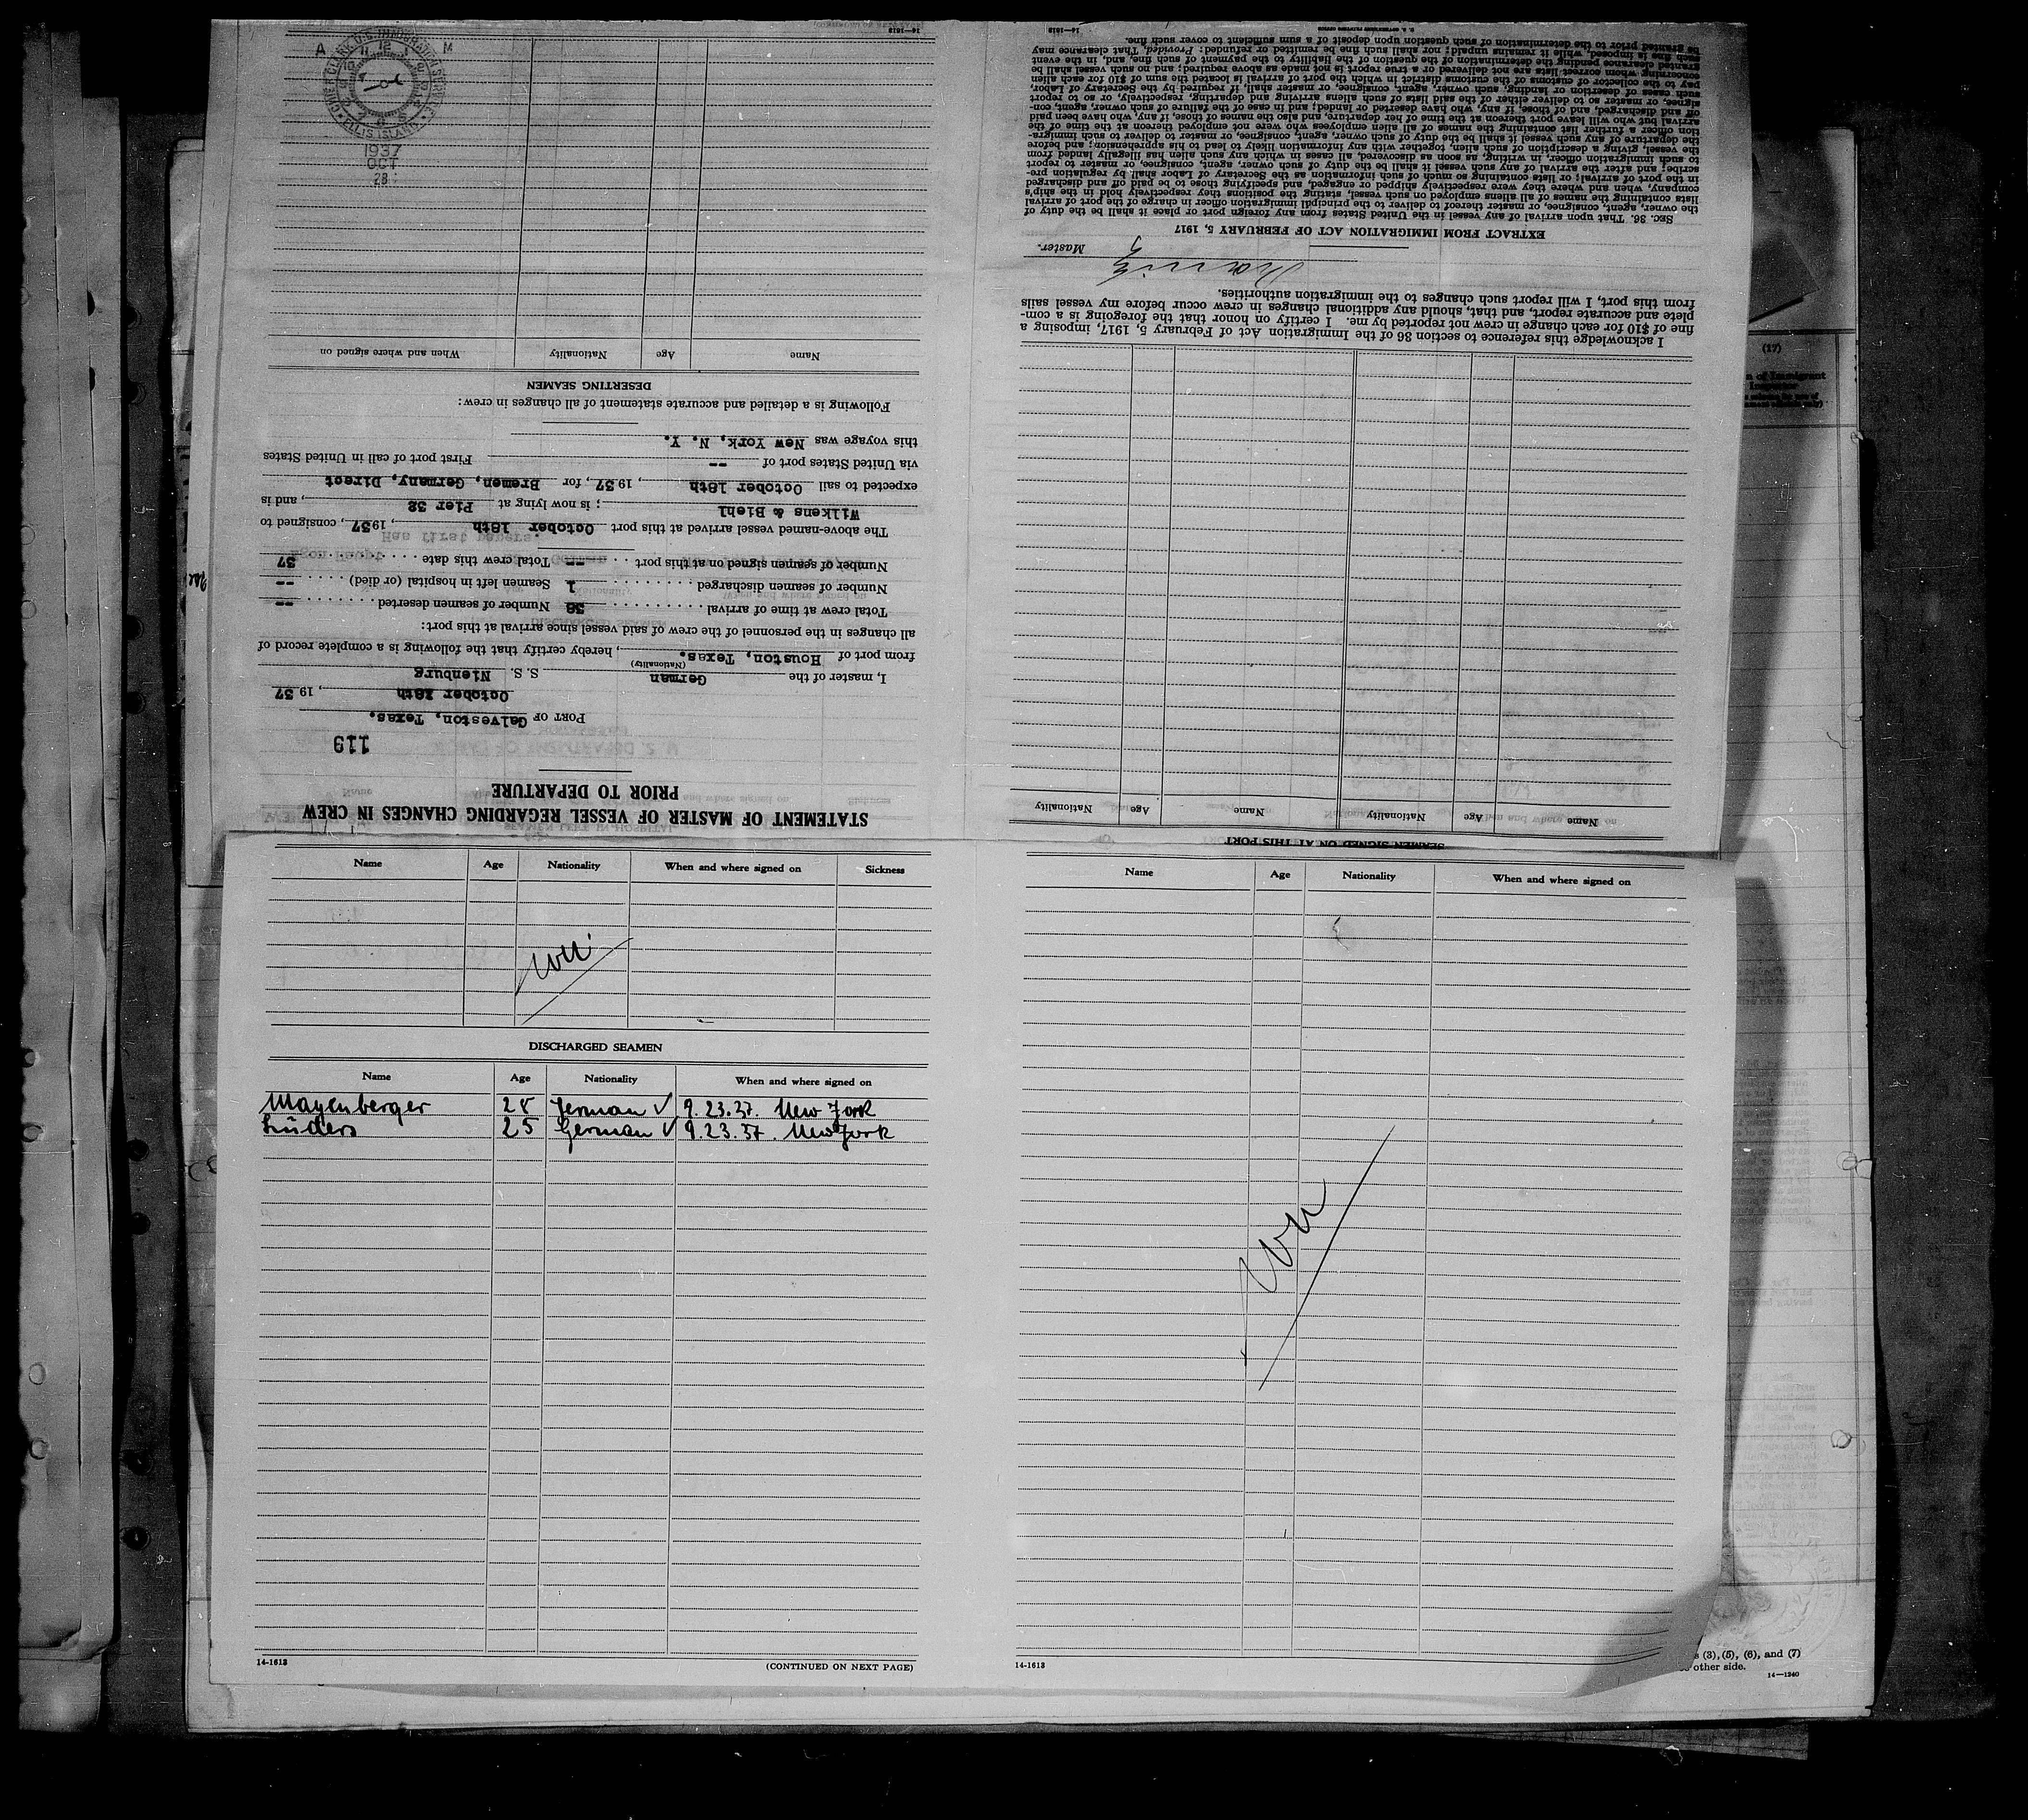 STATEMENT OF MASTER OF VESSEL REGARDING CHANGES IN CREW
PRIOR TO DEPARTURE
119
PORT OF Galveston, Texas.
October 18th, 1937
I, master of the German S. S. Nienburg
(Nationality)
from port of Houston, Texas., hereby certify that the following is a complete record of
all changes in the personnel of the crew of said vessel since arrival at this port:
Total crew at time of arrival 38 Number of seamen deserted --
Number of seamen discharged 1 Seamen left in hospital (or died) --
Number of seamen signed on at this port -- Total crew this date 37
Has first papers.
The above-named vessel arrived at this port October 18th, 1937, consigned to
Wilkens & Biehl; is now lying at Pier 32, and is
expected to sail October 18th, 1937, for Bremen, Germany, Direct
via United States port of -- First port of call in United States
this voyage was New York, N. Y.
Following is a detailed and accurate statement of all changes in crew:
DESERTING SEAMEN
Name Age Nationality When and where signed on
A M
ELLIS ISLAND
1937
OCT
28
14—1613
SEAMEN SIGNED ON AT THIS PORT
Name Age Nationality Name Age Nationality
I acknowledge this reference to section 36 of the Immigration Act of February 5, 1917, imposing a
fine of $10 for each change in crew not reported by me. I certify on honor that the foregoing is a com-
plete and accurate report, and that, should any additional changes in crew occur before my vessel sails
from this port, I will report such changes to the immigration authorities.
Master.
EXTRACT FROM IMMIGRATION ACT OF FEBRUARY 5, 1917
SEC. 36. That upon arrival of any vessel in the United States from any foreign port or place it shall be the duty of
the owner, agent, consignee, or master thereof to deliver to the principal immigration officer in charge of the port of arrival
lists containing the names of all aliens employed on such vessel, stating the positions they respectively hold in the ship's
company, when and where they were respectively shipped or engaged, and specifying those to be paid off and discharged
in the port of arrival; or lists containing so much of such information as the Secretary of Labor shall by regulation pre-
scribe; and after the arrival of any such vessel it shall be the duty of such owner, agent, consignee, or master to report
to such immigration officer, in writing, as soon as discovered, all cases in which any such alien has illegally landed from
the vessel, giving a description of such alien, together with any information likely to lead to his apprehension; and before
the departure of any such vessel it shall be the duty of such owner, agent, consignee, or master to deliver to such immigra-
tion officer a further list containing the names of all alien employees who were not employed thereon at the time of the
arrival but who will leave port thereon at the time of her departure, and also the names of those, if any, who have been paid
off and discharged, and of those, if any, who have deserted or landed; and in case of the failure of such owner, agent, con-
signee, or master so to deliver either of the said lists of such aliens arriving and departing, respectively, or so to report
such cases of desertion or landing, such owner, agent, consignee, or master shall, if required by the Secretary of Labor,
pay to the collector of customs of the customs district in which the port of arrival is located the sum of $10 for each alien
concerning whom correct lists are not delivered or a true report is not made as above required; and no such vessel shall be
granted clearance pending the determination of the question of the liability to the payment of such fine, and, in the event
such fine is imposed, while it remains unpaid; nor shall such fine be remitted or refunded: Provided, That clearance may
be granted prior to the determination of such question upon deposit of a sum sufficient to cover such fine.
14—1613
Name Age Nationality When and where signed on Sickness
DISCHARGED SEAMEN
Name Age Nationality When and where signed on
Mayenberger 28 German ✓ 9.23.37. New York
Lüders 25 German ✓ 9.23.37. New York
14-1613 (CONTINUED ON NEXT PAGE)
Name Age Nationality When and where signed on
14-1613
(17)
n of Immigrant
Inspector
s (3), (5), (6), and (7)
other side.
14—1240